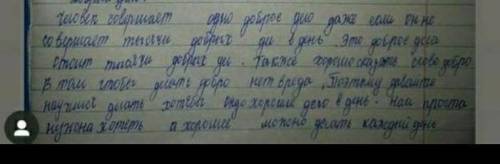 Человек совершает одно доброе дно даже если он не
совершает тысячи добрых дн в день. Это доброе дело
стоит тысячи добрых ды. Также хорошо скажем слово добро
В том чтобы делать добро нет вреда. Поэтому давайте
научимся делать хотябы одно хорошее дело в день. Нам проста
нужона хотеть а хорошее можно делать каждый день